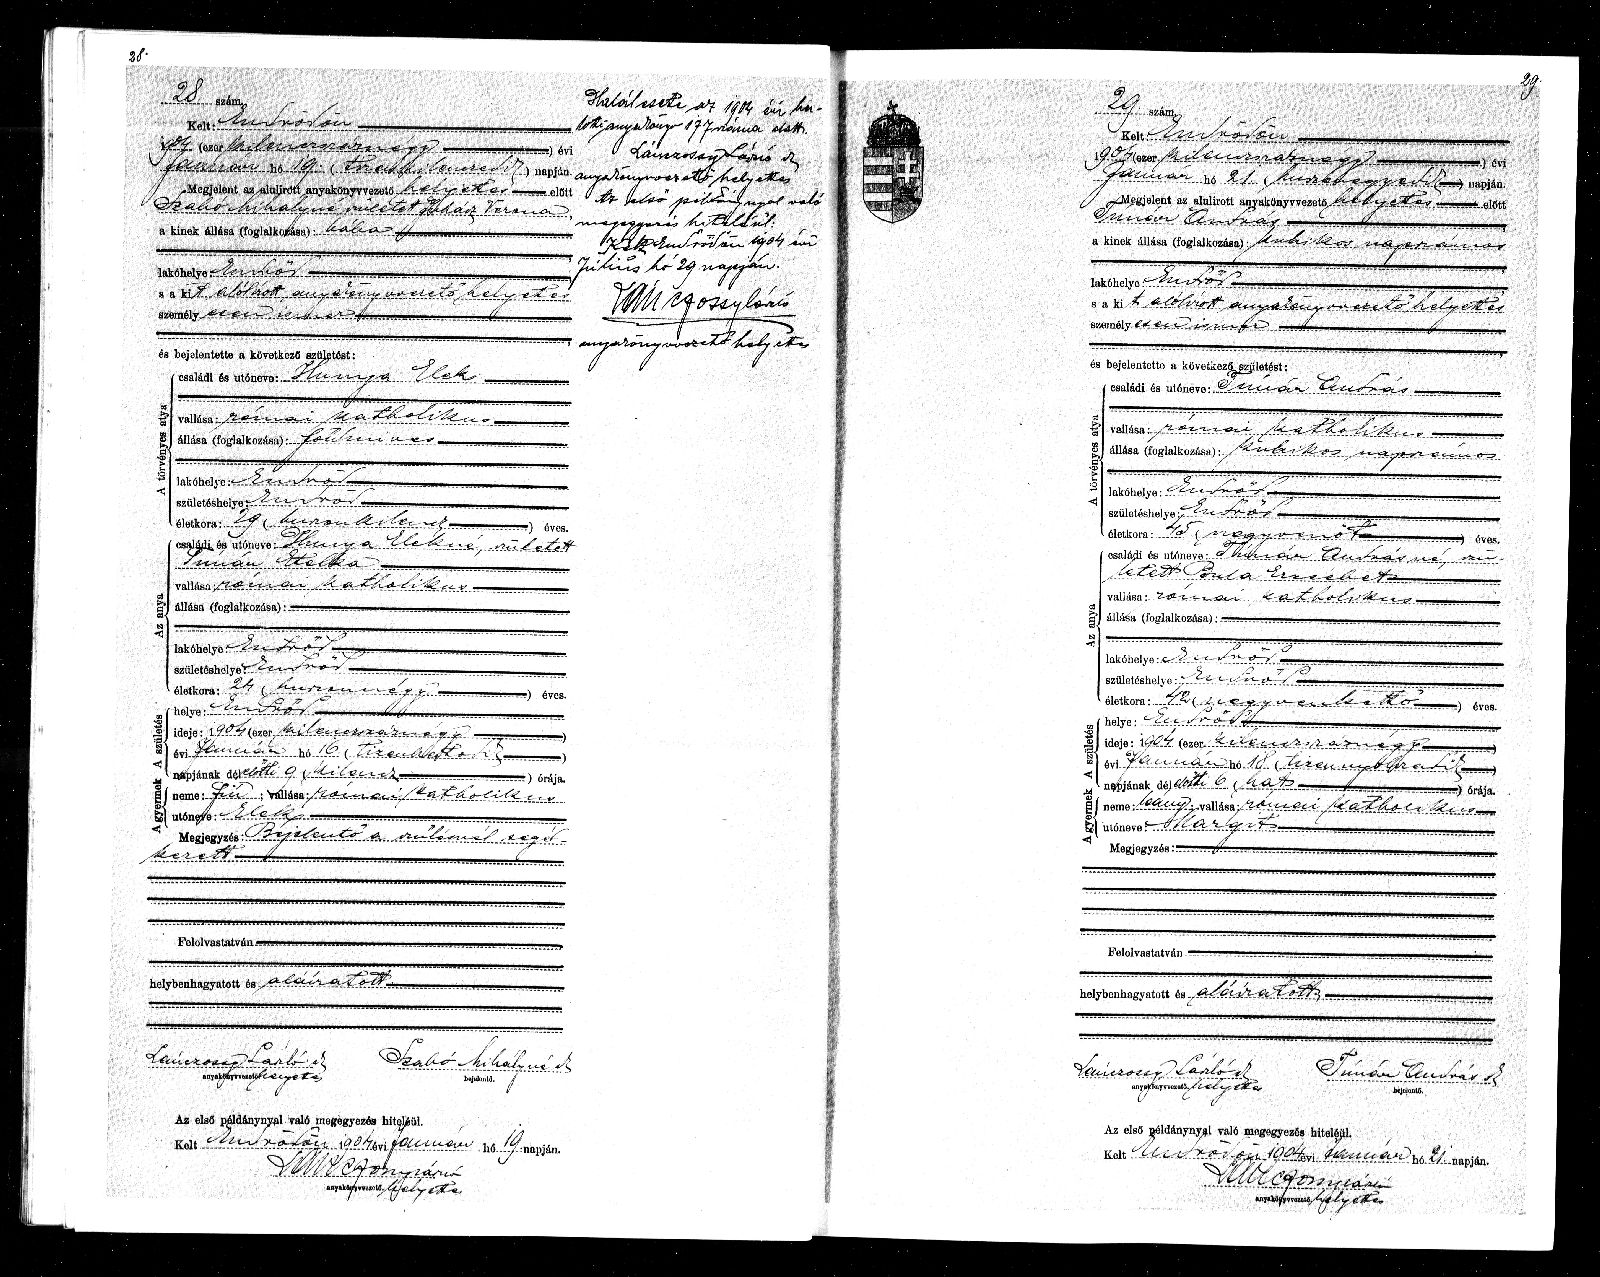 28.
28 szám.
Kelt: Endrődön
1904 (ezer kilenczszáznégy) évi
január hó 19. (tizenkilenczedik) napján.
Megjelent az alulirott anyakönyvvezető helyettes előtt
Szabó Mihályné született Juhász Verona,
a kinek állása (foglalkozása): bába
lakóhelye: Endrőd
s a kit alólirott anyakönyvvezető helyettes
személyesen ismer
és bejelentette a következő születést:
A törvényes atya
családi és utóneve: Hunya Elek
vallása: római katholikus
állása (foglalkozása): földmives
lakóhelye: Endrőd
születéshelye: Endrőd
életkora: 29 (huszonkilencz) éves.
Az anya
családi és utóneve: Hunya Elekné, született
Tímár Etelka
vallása: római katholikus
állása (foglalkozása):
lakóhelye: Endrőd
születéshelye: Endrőd
életkora: 24 (huszonnégy) éves.
A gyermek A születés
helye: Endrőd
ideje: 1904 (ezer kilenczszáznégy)
évi január hó 16 (tizenhatodik)
napjának délelőtti 9 (kilencz) órája.
neme: fiú; vallása: római katholikus
utóneve: Elek
Megjegyzés: Bejelentő a szülésnél segéd-
kezett
Felolvastatván
helybenhagyatott és aláiratott
Lánczossy László sk
anyakönyvvezető helyettes
Szabó Mihályné sk
bejelentő.
Az első példánynyal való megegyezés hiteléül.
Kelt Endrődön 1904 évi január hó 19 napján.
anyakönyvvezető helyettes
Halálesete az 1904 évi ha-
lotti anyakönyv 177 száma alatt.
Lánczossy László sk
anyakönyvvezető helyettes
Az első példánynyal való
megegyezés hiteléül.
Kelt Endrődön 1904 évi
Július hó 29 napján.
Lánczossy László
anyakönyvvezető helyettes
29.
29. szám.
Kelt Endrődön
1904 (ezer kilenczszáznégy) évi
január hó 21. (huszonegyedik) napján.
Megjelent az alulirott anyakönyvvezető helyettes előtt
Tímár András
a kinek állása (foglalkozása): kubikos napszámos
lakóhelye: Endrőd
s a kit alólirott anyakönyvvezető helyettes
személyesen ismer
és bejelentette a következő születést:
A törvényes atya
családi és utóneve: Tímár András
vallása: római katholikus
állása (foglalkozása): kubikos napszámos
lakóhelye: Endrőd
születéshelye: Endrőd
életkora: 45 (negyvenöt) éves.
Az anya
családi és utóneve: Tímár Andrásné, szü-
letett Erzsébet
vallása: római katholikus
állása (foglalkozása):
lakóhelye: Endrőd
születéshelye: Endrőd
életkora: 42 (negyvenkettő) éves.
A gyermek A születés
helye: Endrőd
ideje: 1904 (ezer kilenczszáznégy)
évi január hó 18. (tizennyolczadik)
napjának délelőtti 6 (hat) órája.
neme: leány; vallása: római katholikus
utóneve: Margit
Megjegyzés:
Felolvastatván
helybenhagyatott és aláiratott
Lánczossy László sk
anyakönyvvezető helyettes
Tímár András sk
bejelentő.
Az első példánynyal való megegyezés hiteléül.
Kelt Endrődön 1904 évi január hó 21. napján.
anyakönyvvezető helyettes